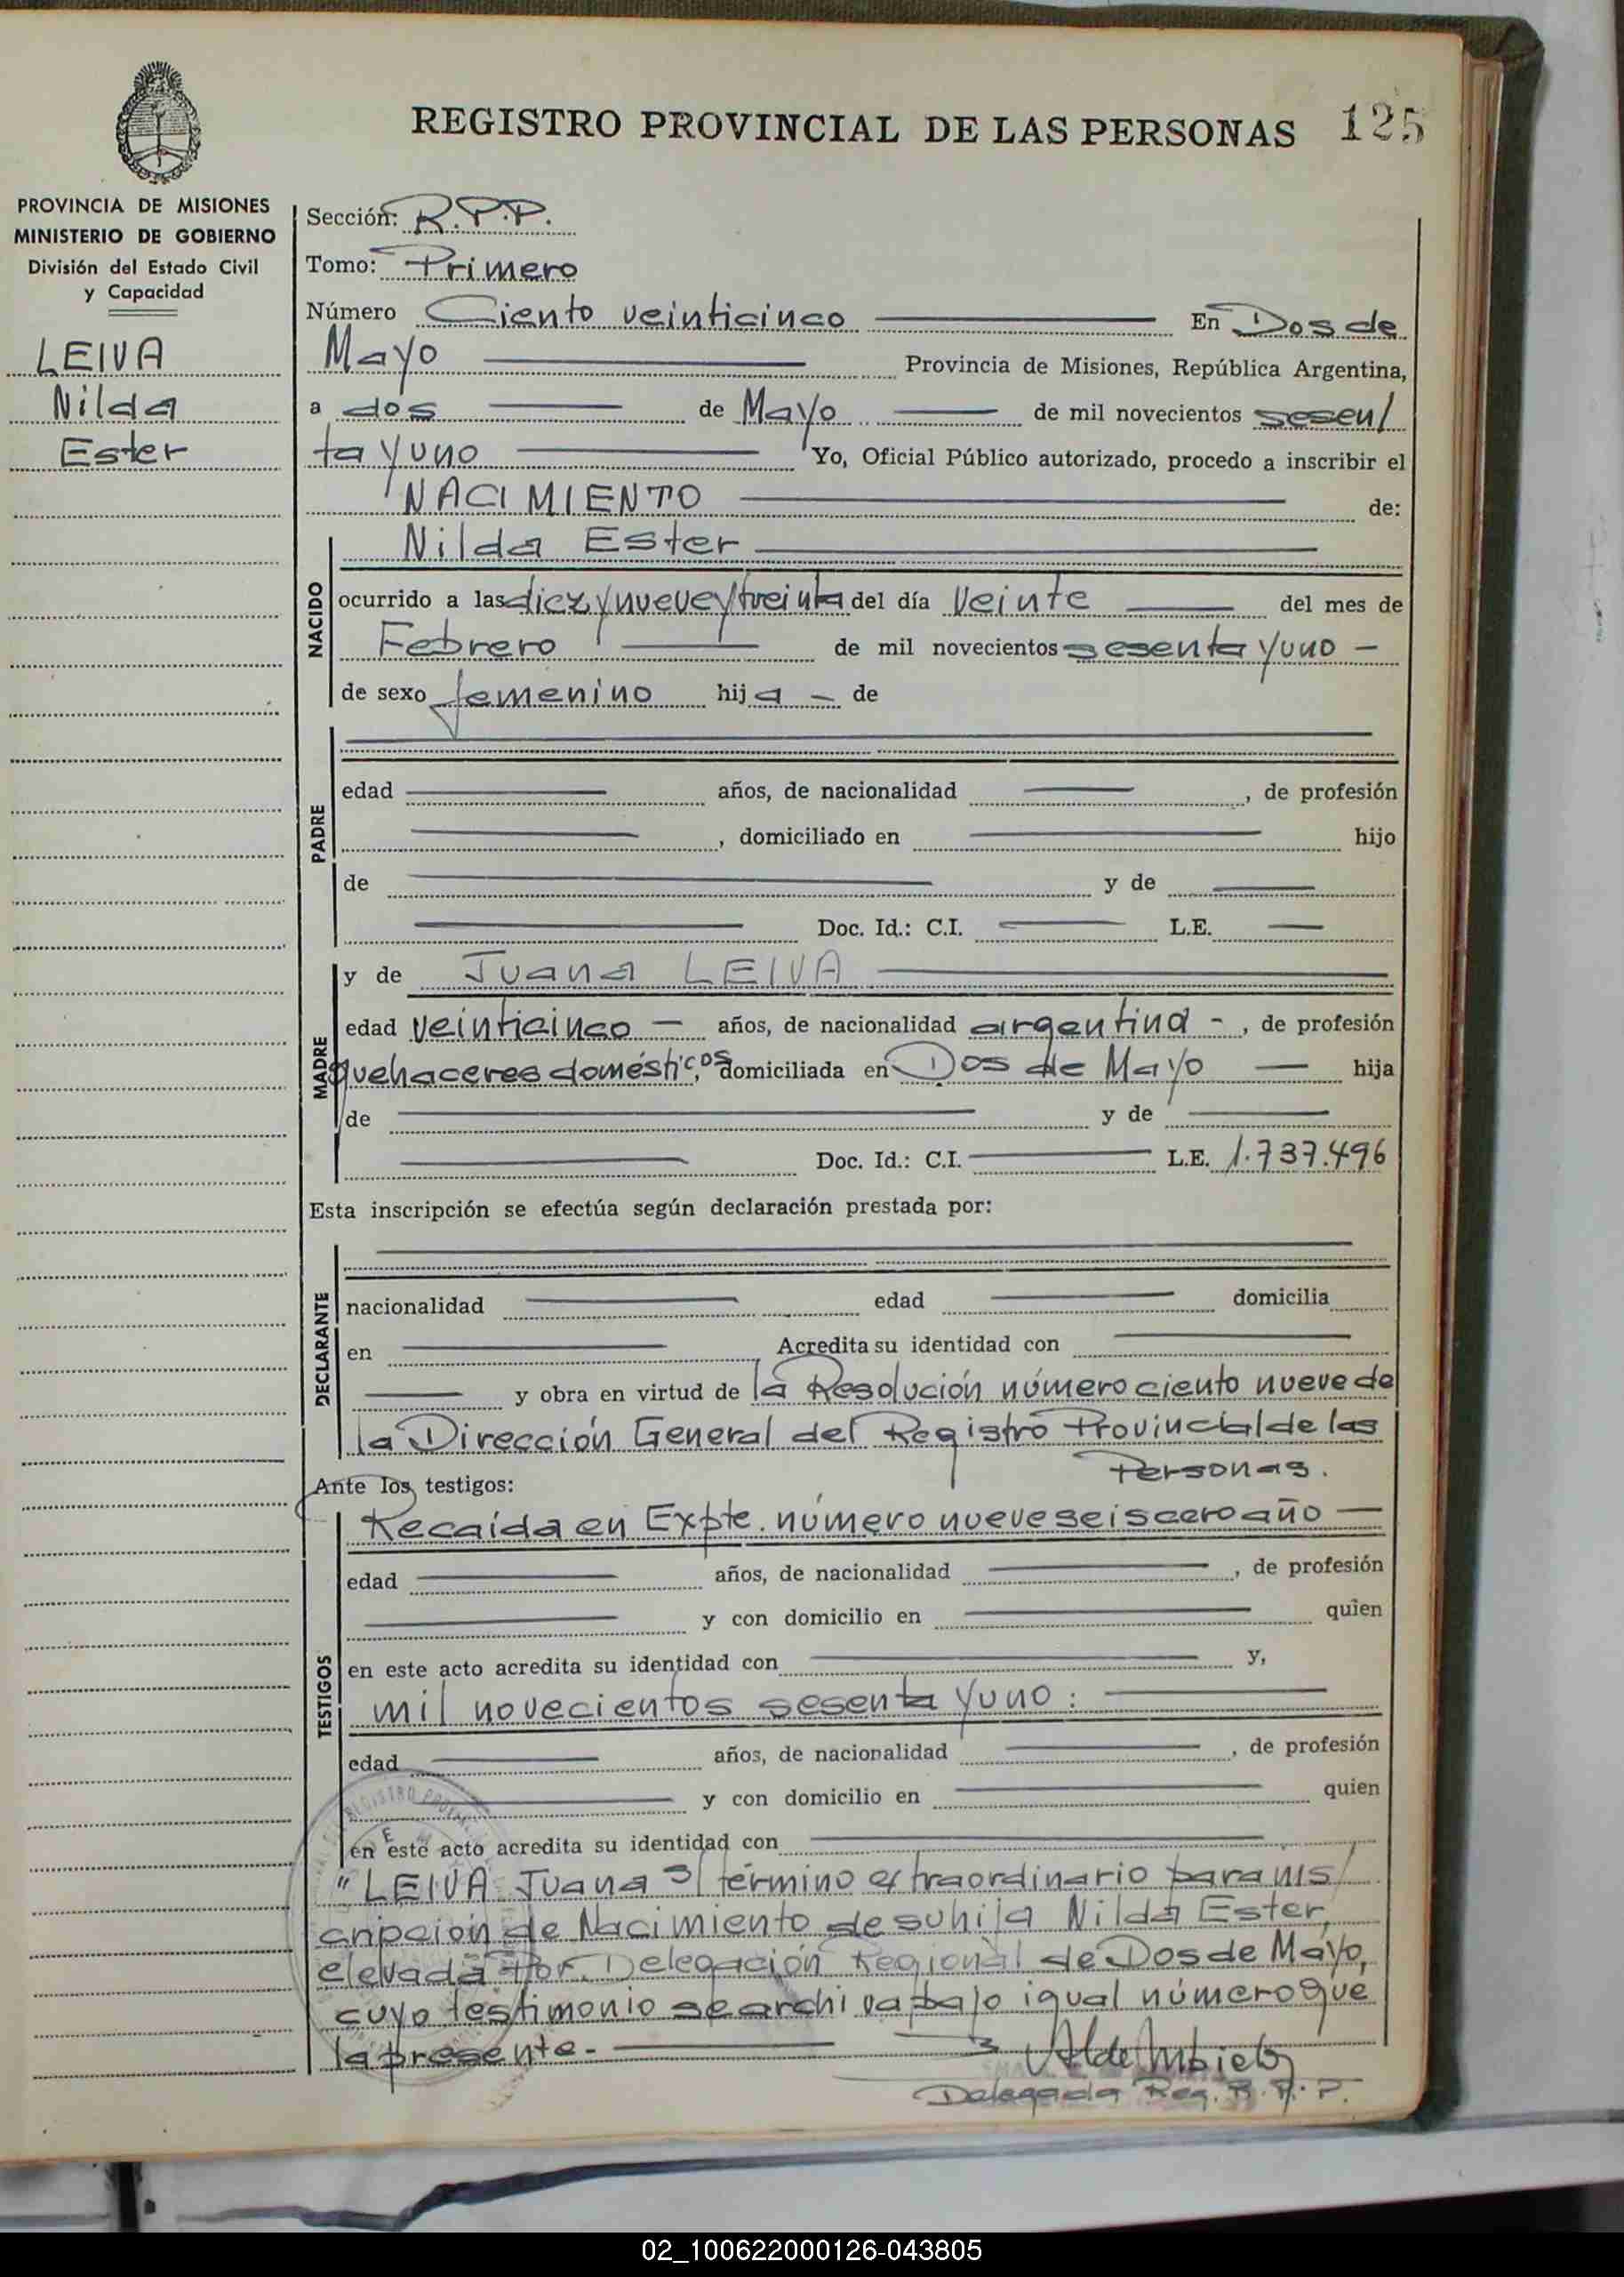 REGISTRO PROVINCIAL DE LAS PERSONAS 125
PROVINCIA DE MISIONES
MINISTERIO DE GOBIERNO
División del Estado Civil
y Capacidad
LEIVA
Nilda
Ester
Sección: R.P.P.
Tomo: Primero
Número Ciento veinticinco En Dos de
Mayo Provincia de Misiones, República Argentina,
a dos de Mayo de mil novecientos sesen/
ta y uno Yo, Oficial Público autorizado, procedo a inscribir el
NACIMIENTO de:
NACIDO
Nilda Ester
ocurrido a las diez y nueve y treinta del día Veinte del mes de
Febrero de mil novecientos sesenta y uno -
de sexo femenino hija - de
PADRE
edad años, de nacionalidad , de profesión
, domiciliado en hijo
de y de
Doc. Id.: C.I. L.E.
MADRE
y de Juana LEIVA
edad veinticinco - años, de nacionalidad argentina - , de profesión
quehaceres domésticos, domiciliada en Dos de Mayo hija
de y de
Doc. Id.: C.I. L.E. 1.737.496
Esta inscripción se efectúa según declaración prestada por:
DECLARANTE
nacionalidad edad domicilia
en Acredita su identidad con
y obra en virtud de la Resolución número ciento nueve de
la Dirección General del Registro Provincial de las
Personas.
Ante los testigos:
TESTIGOS
Recaída en Expte. número nueve seis cero año
edad años, de nacionalidad , de profesión
y con domicilio en quien
en este acto acredita su identidad con y,
mil novecientos sesenta y uno:
edad años, de nacionalidad , de profesión
y con domicilio en quien
en este acto acredita su identidad con
"LEIVA Juana s/ término extraordinario para ins/
cripción de Nacimiento de su hija Nilda Ester,
elevada por Delegación Regional de Dos de Mayo,
cuyo testimonio se archiva bajo igual número que
la presente.-
Delegada Reg. R.P.P.
02_100622000126-043805